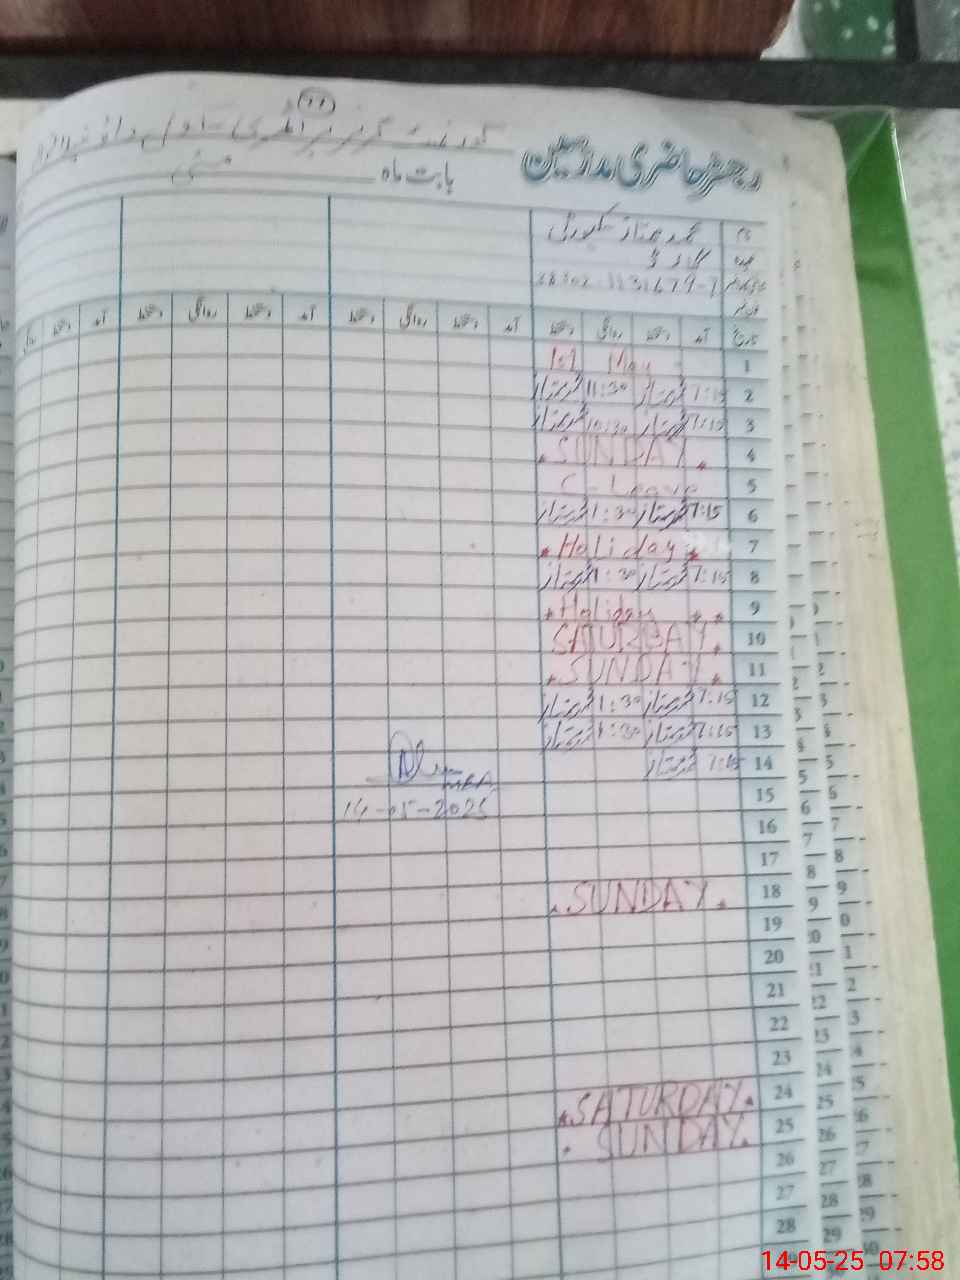 گورنمنٹ گرلز پرائمری سکول
رجسٹر حاضری مدرسین
بابت ماہ مئی
نام محمد ممتاز سکیورٹی
عہدہ گارڈ
تاریخ آمد دستخط روانگی دستخط آمد دستخط روانگی دستخط آمد دستخط روانگی دستخط آمد دستخط
1 1st May
2 7:15 ممتاز 11:30 ممتاز
3 7:15 ممتاز 10:30 ممتاز
4 SUNDAY
5 C-Leave
6 7:15 ممتاز 1:30 ممتاز
7 Holiday
8 7:15 ممتاز 1:30 ممتاز
9 Holiday
10 SATURDAY
11 SUNDAY
12 7:15 ممتاز 1:30 ممتاز
13 7:15 ممتاز 1:30 ممتاز
14 7:15 ممتاز
15 14-05-2025
16
17
18 SUNDAY
19
20
21
22
23
24 SATURDAY
25 SUNDAY
26
27
28
14-05-25 07:58